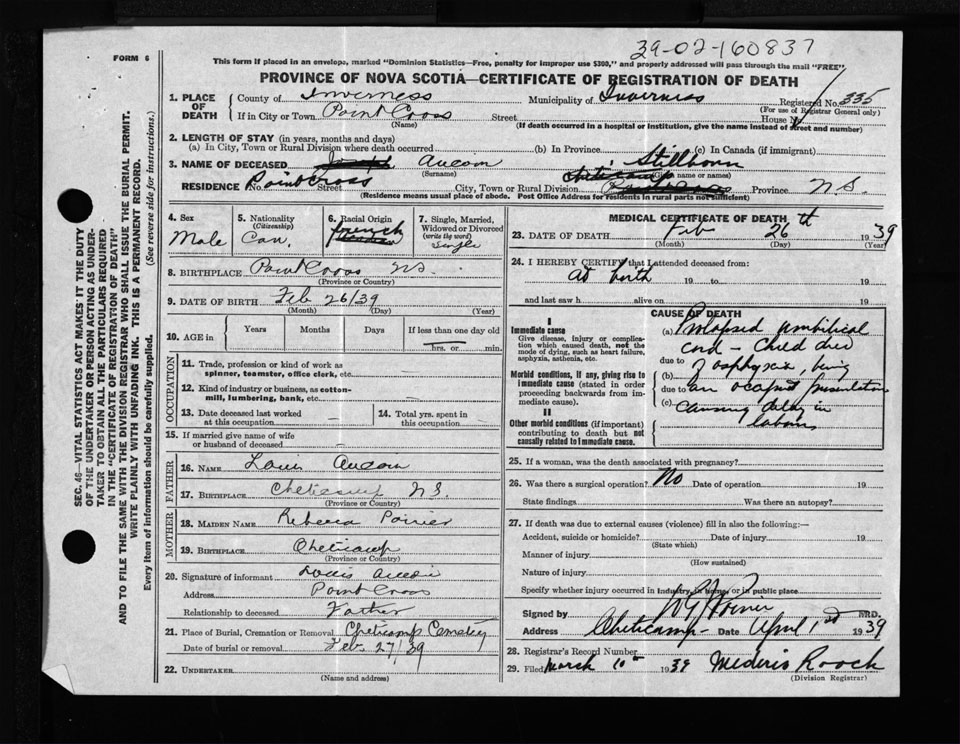 39-02-160837
FORM 6
This form if placed in an envelope, marked "Dominion Statistics—Free, penalty for improper use $300," and properly addressed will pass through the mail "FREE".
PROVINCE OF NOVA SCOTIA—CERTIFICATE OF REGISTRATION OF DEATH
SEC. 46—VITAL STATISTICS ACT MAKES IT THE DUTY
OF THE UNDERTAKER OR PERSON ACTING AS UNDER-
TAKER TO OBTAIN ALL THE PARTICULARS REQUIRED
IN THE "CERTIFICATE OF REGISTRATION OF DEATH"
AND TO FILE THE SAME WITH THE DIVISION REGISTRAR WHO SHALL ISSUE THE BURIAL PERMIT.
WRITE PLAINLY WITH UNFADING INK. THIS IS A PERMANENT RECORD.
Every item of information should be carefully supplied. (See reverse side for instructions.)
1. PLACE OF DEATH County of Inverness Municipality of Inverness Registered No. 335
(For use of Registrar General only)
If in City or Town Point Cross Street House No.
(Name) (If death occurred in a hospital or institution, give the name instead of street and number)
2. LENGTH OF STAY (in years, months and days)
(a) In City, Town or Rural Division where death occurred (b) In Province (c) In Canada (if immigrant)
3. NAME OF DECEASED Joseph Aucoin Stillborn
(Surname) (Given name or names)
RESIDENCE No. Point Cross Street City, Town or Rural Division Cheticamp Province N.S.
(Residence means usual place of abode. Post Office Address for residents in rural parts not sufficient)
4. Sex Male
5. Nationality (Citizenship) Can.
6. Racial Origin French
7. Single, Married, Widowed or Divorced (write the word) Single
8. BIRTHPLACE Point Cross N.S.
(Province or Country)
9. DATE OF BIRTH Feb 26/39
(Month) (Day) (Year)
10. AGE in Years Months Days If less than one day old
hrs. or min.
OCCUPATION
11. Trade, profession or kind of work as
spinner, teamster, office clerk, etc.
12. Kind of industry or business, as cotton-
mill, lumbering, bank, etc.
13. Date deceased last worked
at this occupation
14. Total yrs. spent in
this occupation
15. If married give name of wife
or husband of deceased
FATHER
16. NAME Louis Aucoin
17. BIRTHPLACE Cheticamp N.S.
(Province or Country)
MOTHER
18. MAIDEN NAME Rebecca Poirier
19. BIRTHPLACE Cheticamp
(Province or Country)
20. Signature of informant Louis Aucoin
Address Point Cross
Relationship to deceased Father
21. Place of Burial, Cremation or Removal Cheticamp Cemetery
Date of burial or removal Feb 27/39
22. UNDERTAKER
(Name and address)
MEDICAL CERTIFICATE OF DEATH
23. DATE OF DEATH Feb 26th 1939
(Month) (Day) (Year)
24. I HEREBY CERTIFY that I attended deceased from:
at birth 19 to 19
and last saw h alive on 19
CAUSE OF DEATH
I
Immediate cause
Give disease, injury or complica-
tion which caused death, not the
mode of dying, such as heart failure,
asphyxia, asthenia, etc.
Morbid conditions, if any, giving rise to
immediate cause (stated in order
proceeding backwards from im-
mediate cause).
II
Other morbid conditions (if important)
contributing to death but not
causally related to immediate cause.
(a) Prolapsed umbilical
cord - Child died
due to
(b) of asphyxia, being
due to an occiput presentation
(c) causing delay in
labour
25. If a woman, was the death associated with pregnancy?
26. Was there a surgical operation? No Date of operation 19
State findings Was there an autopsy?
27. If death was due to external causes (violence) fill in also the following:—
Accident, suicide or homicide? Date of injury 19
(State which)
Manner of injury
(How sustained)
Nature of injury
Specify whether injury occurred in industry, in home, or in public place
Signed by Poirier M.D.
Address Cheticamp - Date April 1st 1939
28. Registrar's Record Number
29. Filed March 10th 1939 Mederis Roach
(Division Registrar)